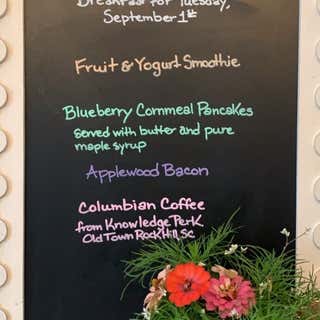 Breakfast for Tuesday,
September 1st
Fruit & Yogurt Smoothie
Blueberry Cornmeal Pancakes
served with butter and pure
maple syrup
Applewood Bacon
Columbian Coffee
from Knowledge Perk
Old Town Rock Hill SC